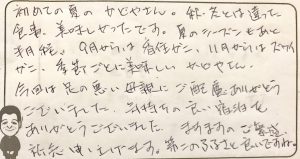 初めての夏のかどやさん。秋・冬とは違った
食事、美味しかったです。夏のシーズンもあと
半月程。9月からは香住ガニ、11月からはズワイ
ガニ 季節ごとに美味しい かどやさん。
今回は足の悪い母親にご配慮ありがとう
ございました。気持ちの良い宿泊を
ありがとうございました。ますますのご繁盛
祈念申し上げます。